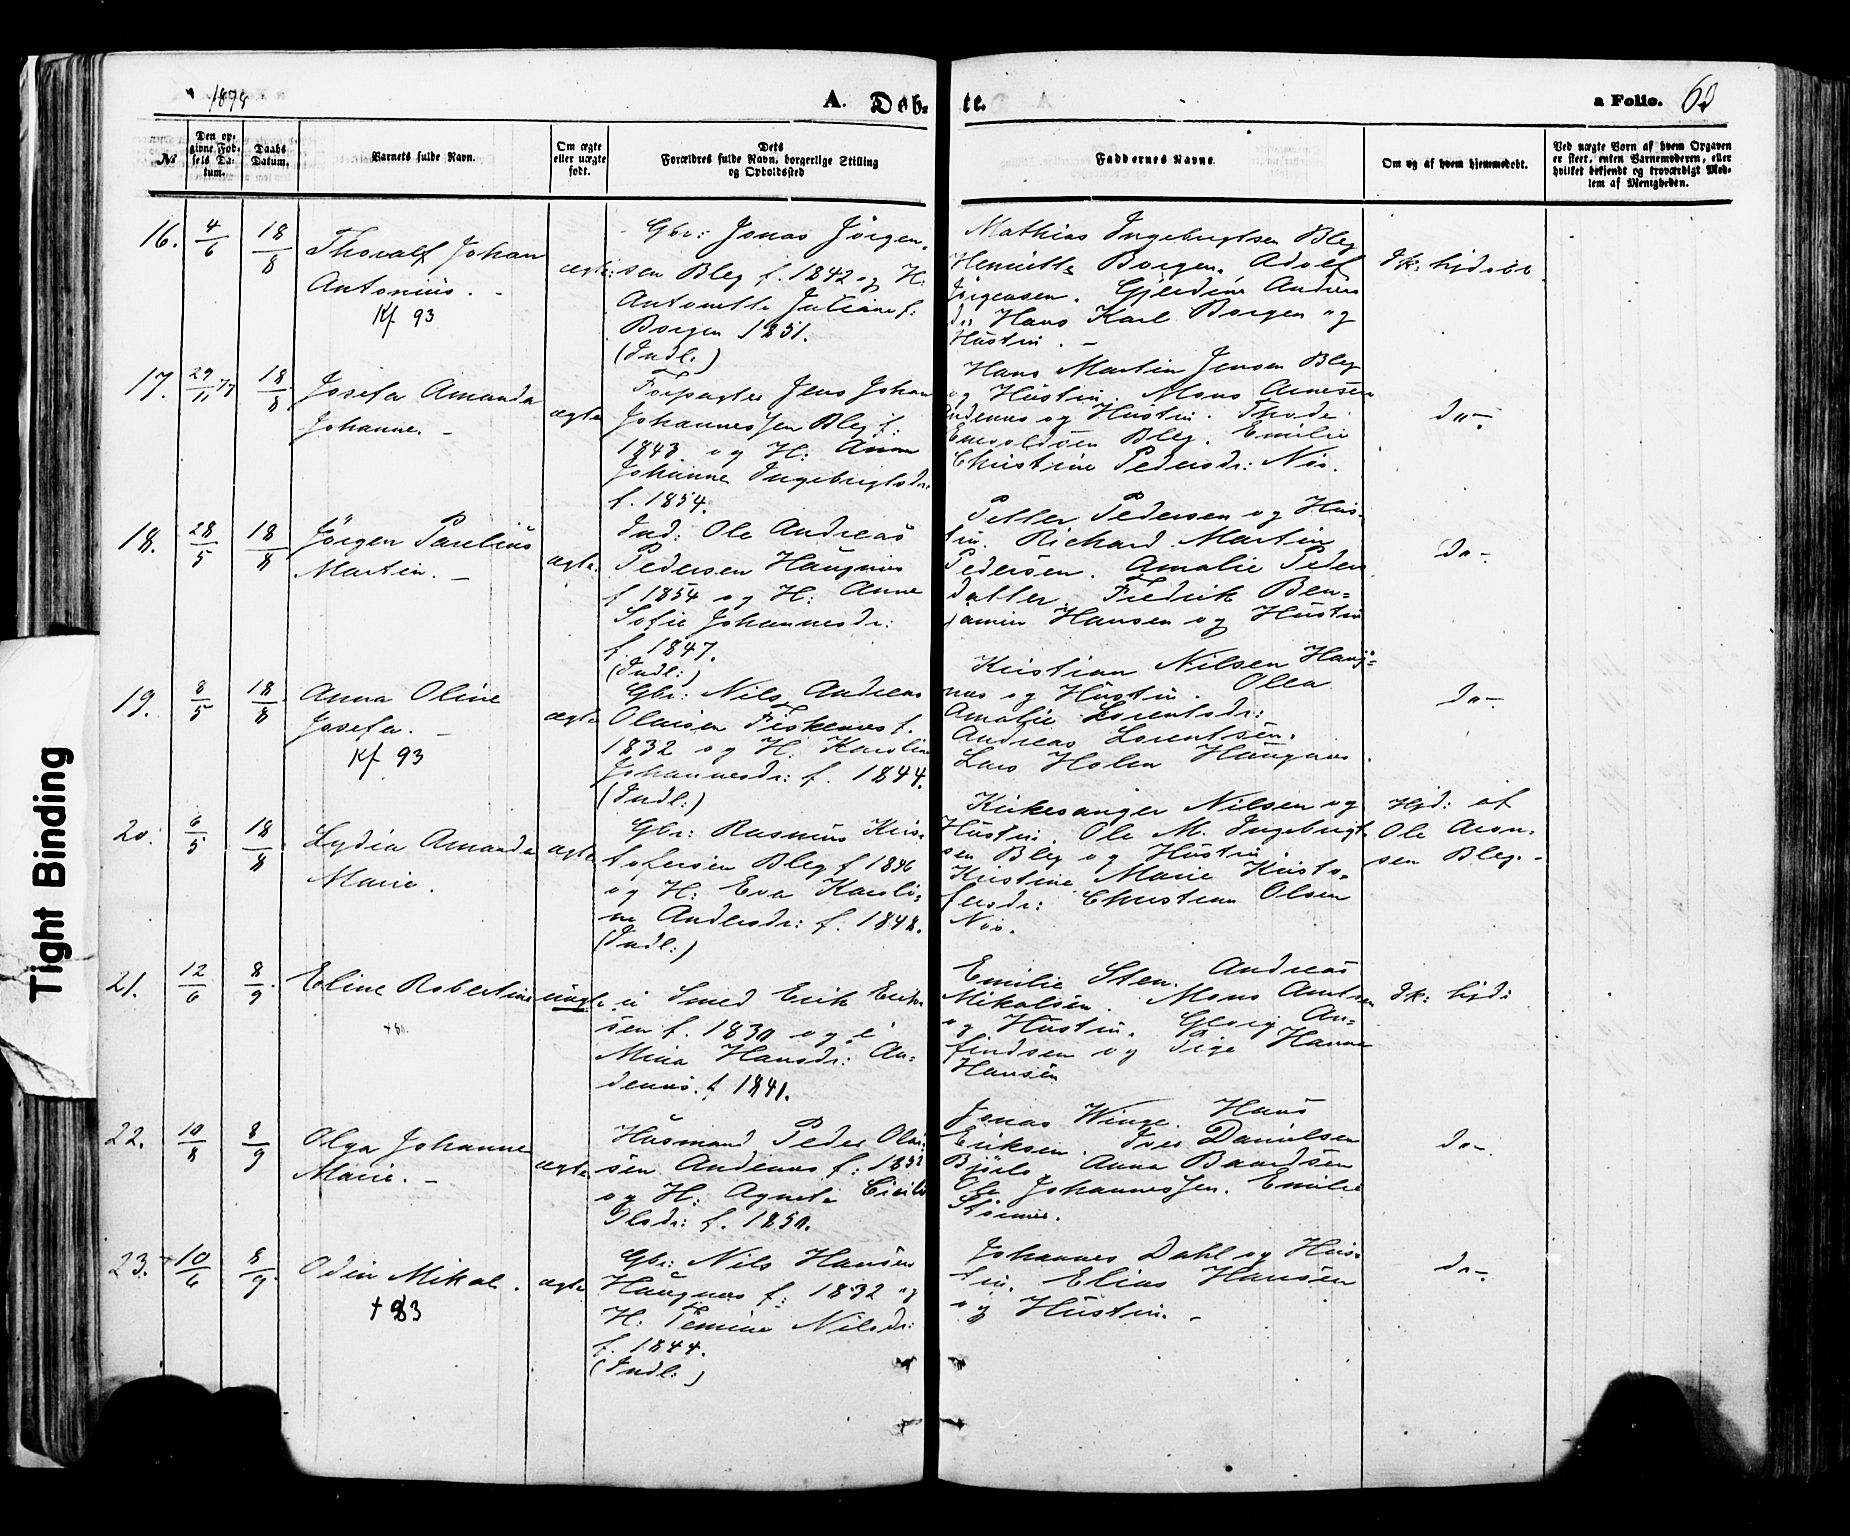 1878
A. Døb-
te.
a Folio. 63
№
Den op-
givne Fød-
sels Da-
tum.
Daabs
Datum.
Barnets fulde Navn.
Om ægte
eller uægte
født.
Dets
Forældres fulde Navn, borgerlige Stilling
og Opholdssted
Faddernes Navne
Om og af hvem hjemmedøbt.
Ved uægte Børn af hvem Opgaven
er skeet, enten Barnemoderen, eller
hvilket bekjendt og troværdigt Med-
lem af Menigheden.
16.
4/6
18/8
Thoralf Johan
Antonius. -
Kf 93
ægte
Gbr: Jonas Jørgen-
sen Bleg f. 1842 og H:
Antonette Juliane f:
Borgen 1851.
(Indl.)
Mathias Ingebrigtsen Bleg
Henriette Borgen. Adolf
Jørgensen. Gjerdine Anders
dr: Hans Karl Borgen og
Hustru. -
Ik: hjdøbt
17.
29/11 77
18/8
Josefa Amanda
Johanne. -
ægte
Forpagter Jens Johan
Johannessen Bleg f:
1843 og H: Anna
Johanne Ingebrigtsdr:
f. 1854.
Hans Martin Jensen Bleg
og Hustru. Mons Arnesen
Andenes og Hustru. Thode
Enevoldsen Bleg. Emilie
Christine Pedersdr: Nøs.
do -
18.
28/5
18/8
Jørgen Parelius
Martin. -
ægte
Ind: Ole Andreas
Pedersen Haugnes
f 1854 og H: Anne
Sofie Johannesdr:
f. 1847.
(Indl:)
Petter Pedersen og Hus-
tru. Richard Martin
Pedersen. Amalie Peders
datter. Fredrik Ben-
jamin Hansen og Hustru
do -
19.
8/5
18/8
Anna Oline
Josefa. -
Kf 93
ægte
Gbr: Nils Andreas
Olaisen Fiskenes f.
1832 og H. Karoline
Johannesdr: f. 1844.
(Indl:)
Kristian Nilsen Haug-
nes og Hustru. Olea
Amalie Lorentsdr:
Andreas Lorentsen.
Lars Holen Haugnes.
do -
20.
6/5
18/8
Lydia Amanda
Marie.
ægte
Gbr: Rasmus Kris-
tofersen Bleg f 1846
og H: Eva Karoli-
ne Andersdr: f. 1848.
(Indl:)
Kirkesanger Nilsen og
Hustru. Ole M. Ingebrigt-
sen Bleg og Hustru.
Kristine Marie Kristo-
fersdr: Christian Olsen
Nøs.
Hjd: af
Ole Aron-
sen Bleg. -
21.
12/6
8/9
Eline Robertine
uægte
u Smed Erik Erik-
sen f. 1830 og
Mina Hansdr: An-
denes. f 1841.
Emilie Sten. Andreas
Mikalsen. Mons Arntsen
og Hustru. Georg An-
findsen og Pige Hanna
Hansen
Ik: hjd:
22.
10/8
8/9
Olga Johanne
Marie. -
ægte
Husmand Peder Olai-
sen Andenes f: 1852
og H: Agneta
Olsdr: f. 1850.
Jonas Winge. Hans
Eriksen. Iver Danielsen
Anna Baardsen
Ole Johannessen. Emilie
do -.
23.
10/6
8/9
Odin Mikal.
+ 83
ægte
Gbr: Nils Hansen
Haugnes f: 1832 og
H: Nilsdr:
f. 1844.
(Indl:)
Johannes Dahl og Hus-
tru. Elias Hansen
og Hustru. -
do -.
Tight Binding